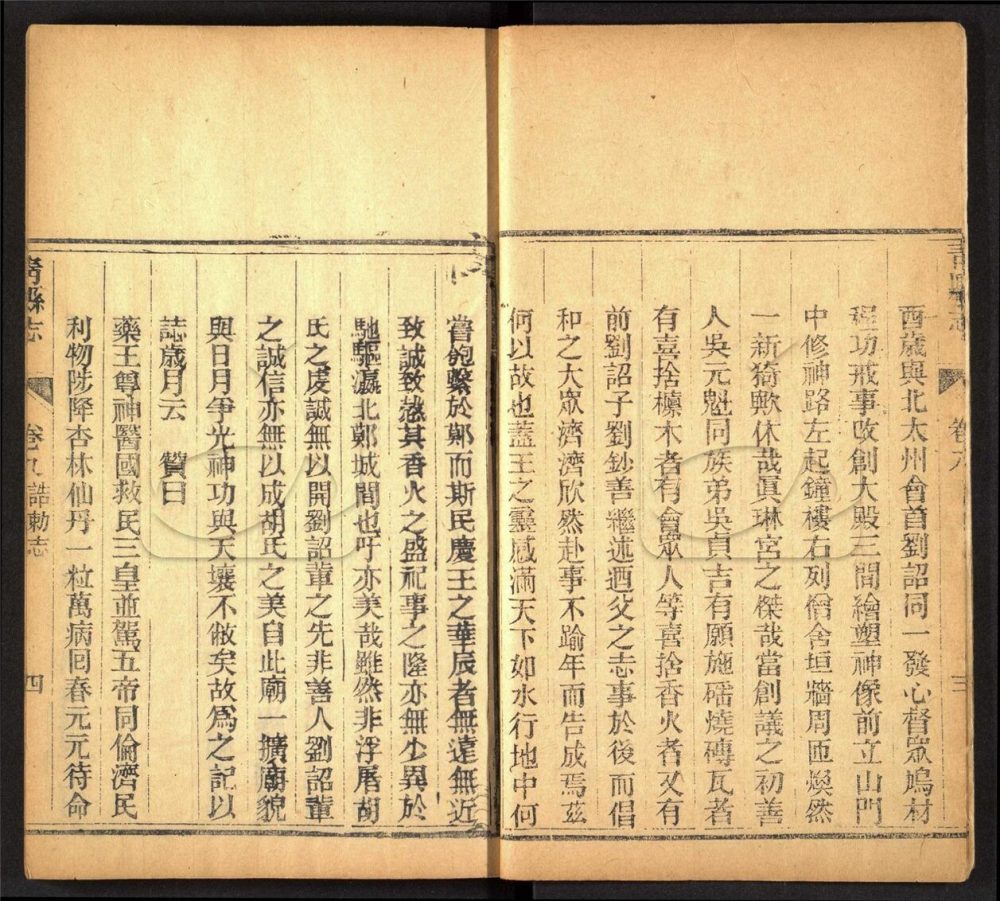 酉歲與北大州會首劉詔同一發心督眾鳩材
程功戒事改創大殿三間繪塑神像前立山門
中修神路左起鐘樓右列僧舍垣牆周匝煥然
一新猗歟休哉眞琳宮之傑哉當創議之初善
人吳元魁同族弟吳貞吉有願施磚燒磚瓦者
有喜捨檩木者有會眾人等喜捨香火者又有
前劉詔子劉鈔善繼述迺父之志事於後而倡
和之大眾濟濟欣然赴事不踰年而告成焉茲
何以故也蓋王之靈感滿天下如水行地中何
卷九
三
嘗飽繫於鄚而斯民慶王之華辰者無遠無近
致誠致慤其香火之盛祀事之隆亦無少異於
馳驅瀛北鄚城間也吁亦美哉雖然非浮屠胡
氏之虔誠無以開劉詔輩之先非善人劉詔輩
之誠信亦無以成胡氏之美自此廟一擴廟貌
與日月爭光神功與天壤不敝矣故爲之記以
誌歲月云 贊曰
藥王尊神醫國救民三皇並駕五帝同倫濟民
利物陟降杏林仙丹一粒萬病囘春元元待命
青縣志
卷九 誥勅志
四